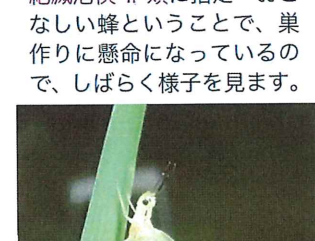 なしい蜂ということで、巣
作りに懸命になっているの
で、しばらく様子を見ます。